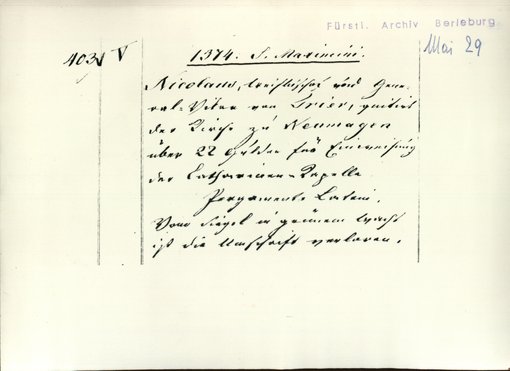 Fürstl. Archiv Berleburg
Mai 29
403 V
1374. S. Maximini.
Nicolaus, Weihbischof und Gene-
ral-Vikar von Trier, quittirt
der Kirche zu Neumagen
über 22 Gulden für Einweihung
der Catharinen-Capelle.
Pergament. Latein.
Vom Siegel in grünem Wachs
ist die Umschrift verloren.